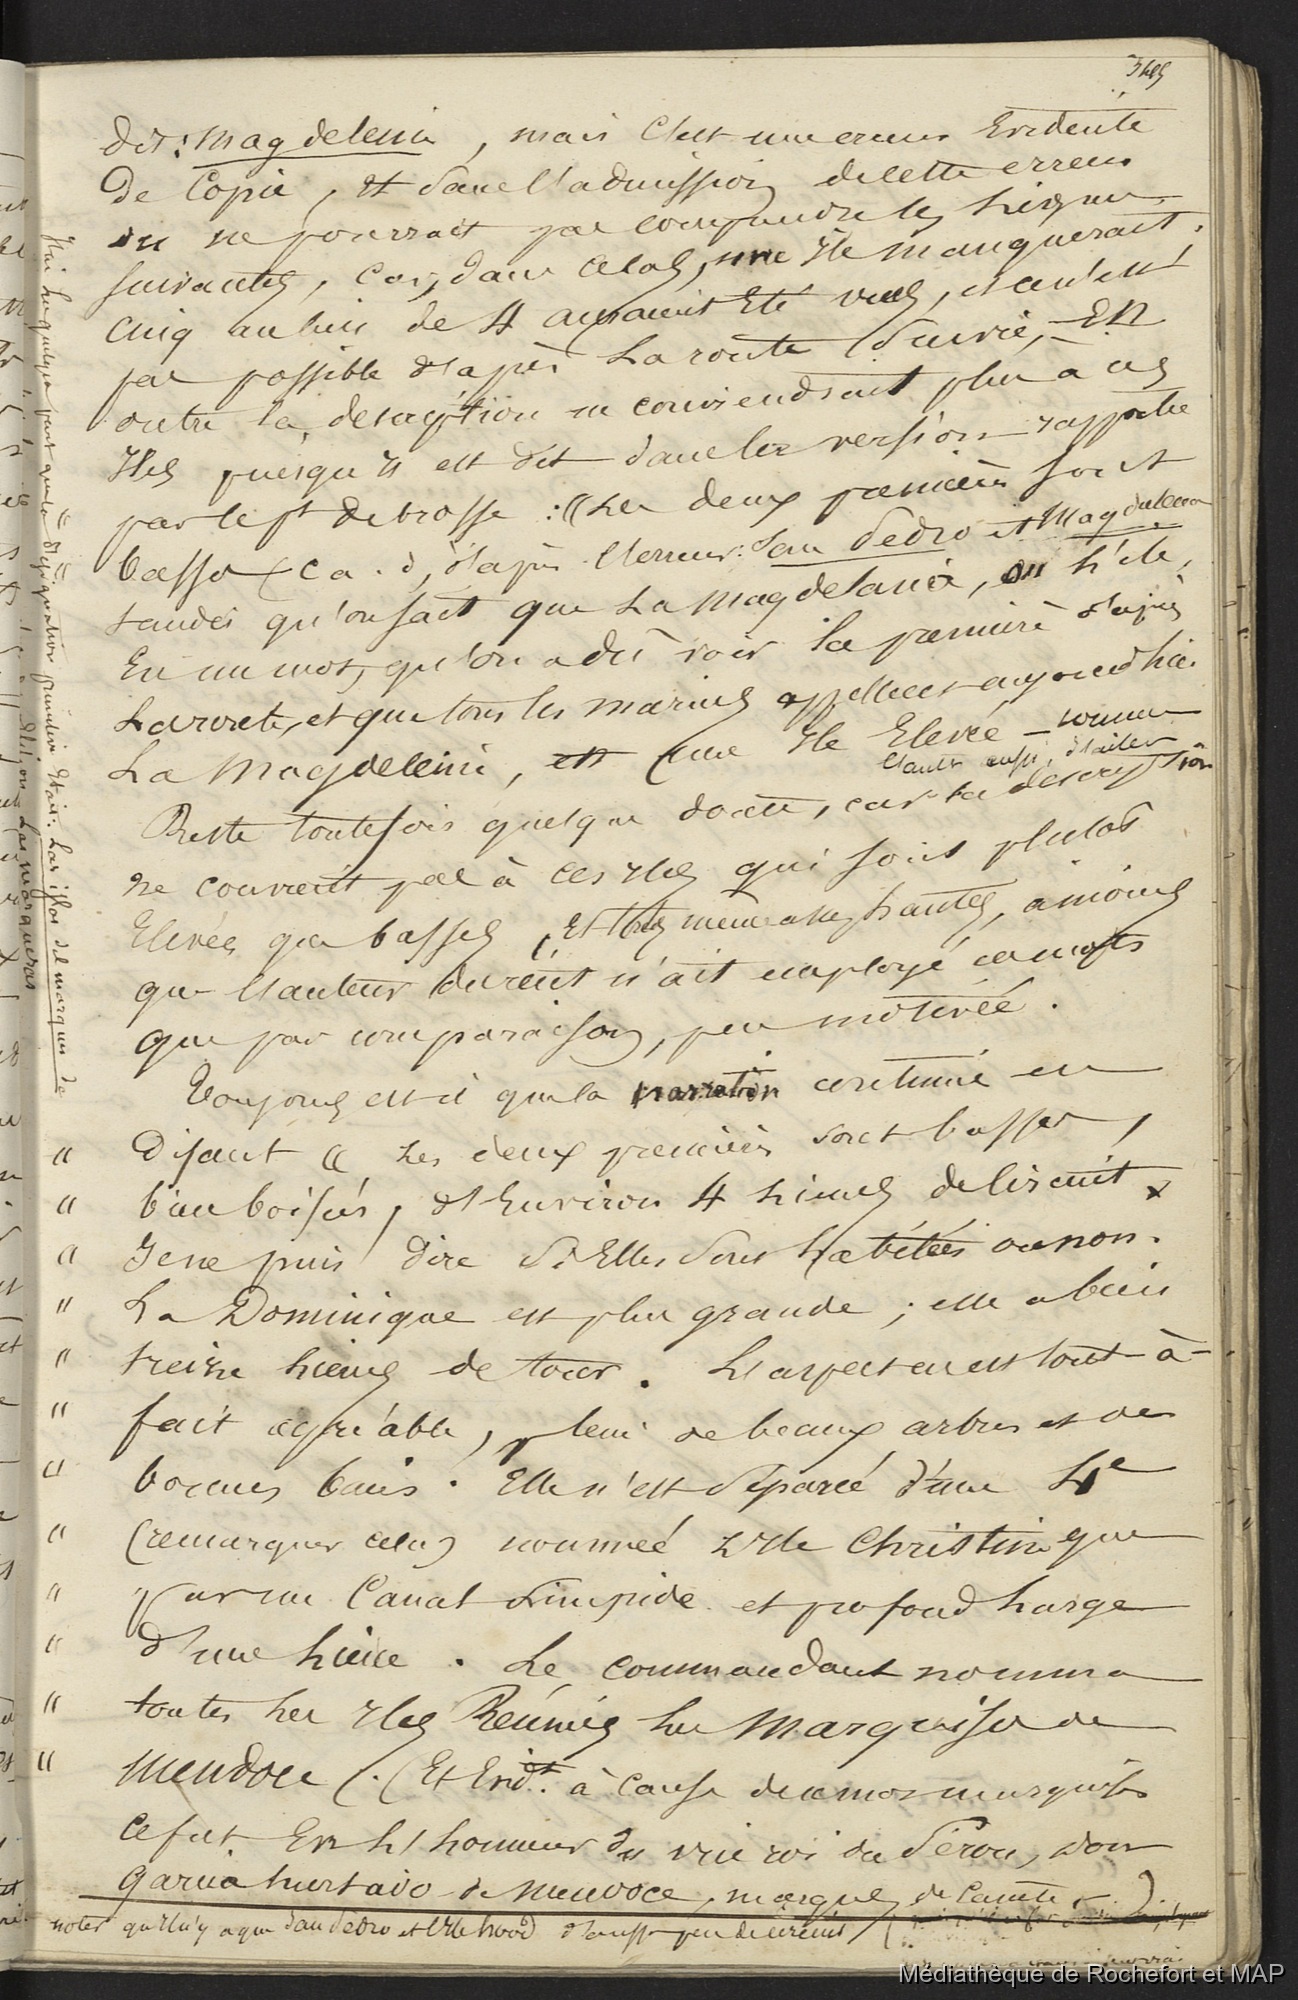 dit: Magdeleine, mais C'est une erreur Evidente
De Copie, et sans l'admission de cette erreur
on ne pourrait pas comprendre les Lignes
suivantes, car, dans ce cas, une Ile manquerait,
cinq au lieu de 4 auraient Eté vues, et ce n'est
pas possible d'après La route suivie, - EN
outre la description ne conviendrait plus à ces
Iles puisqu'il est dit dans les version rapportée
par le Pt Debrosse : "Les deux premières sont
basses (c. a. d, d'après l'erreur: San Pedro et Magdeleina
tandis qu'on sait que La Magdelania,
En un mot, qu'on a dû voir la première d'après
La route, et que tous les marins appellent aujourd'hui
La Magdeleine, est une Ile Elevée - comme
l'autre aussi, d'ailleurs
Reste toutefois quelque doute, car la description
ne convient pas à ces Iles qui sont plutôt
Elevées que basses, Et très même assez hautes, à moins
que l'auteur du récit n'ait employé ces mots
que par comparaison, peu motivée.
Toujours est-il que la narration continue en
" Disant " Les deux premières sont basses,
" bien boisées, d'Environ 4 Lieues de circuit x
" Je ne puis dire si Elles sont habitées ou non.
" La Dominique est plus grande ; elle a bien
" treize Lieues de tour. L'aspect en est tout-à-
" fait agréable, plein de beaux arbres et de
" bonnes baies. Elle n'est séparée d'une Ie
" (remarquer cela) nommée L'Ile Christine que
" par un Canal Limpide et profond Large
" d'une Lieue. Le commandant nomma
" toutes Les Iles Réunies Les Marquises de
" Mendoce (. (Et Evidt. à Cause de ce mot marquises
ce fut En L'honneur du vice roi du Pérou, Don
Garcia Hurtado de Mendoce, marquis de Canete -.).
noter qu'il n'y a que San Pedro et l'Ile hood d'aussi peu de circuit
J'ai lu quelque part que la désignation première Etait: Las islas del marques de
Médiathèque de Rochefort et MAP